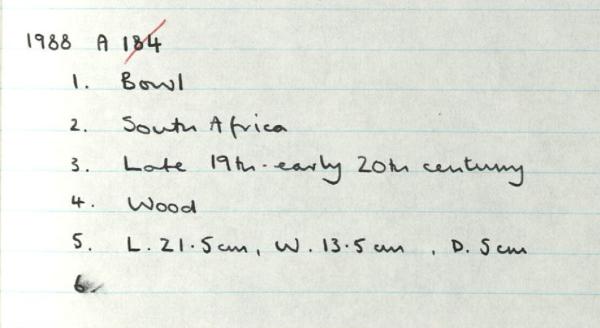 1988 A 184
1. Bowl
2. South Africa
3. Late 19th-early 20th century
4. Wood
5. L. 21.5cm, W. 13.5cm, D. 5cm
6.